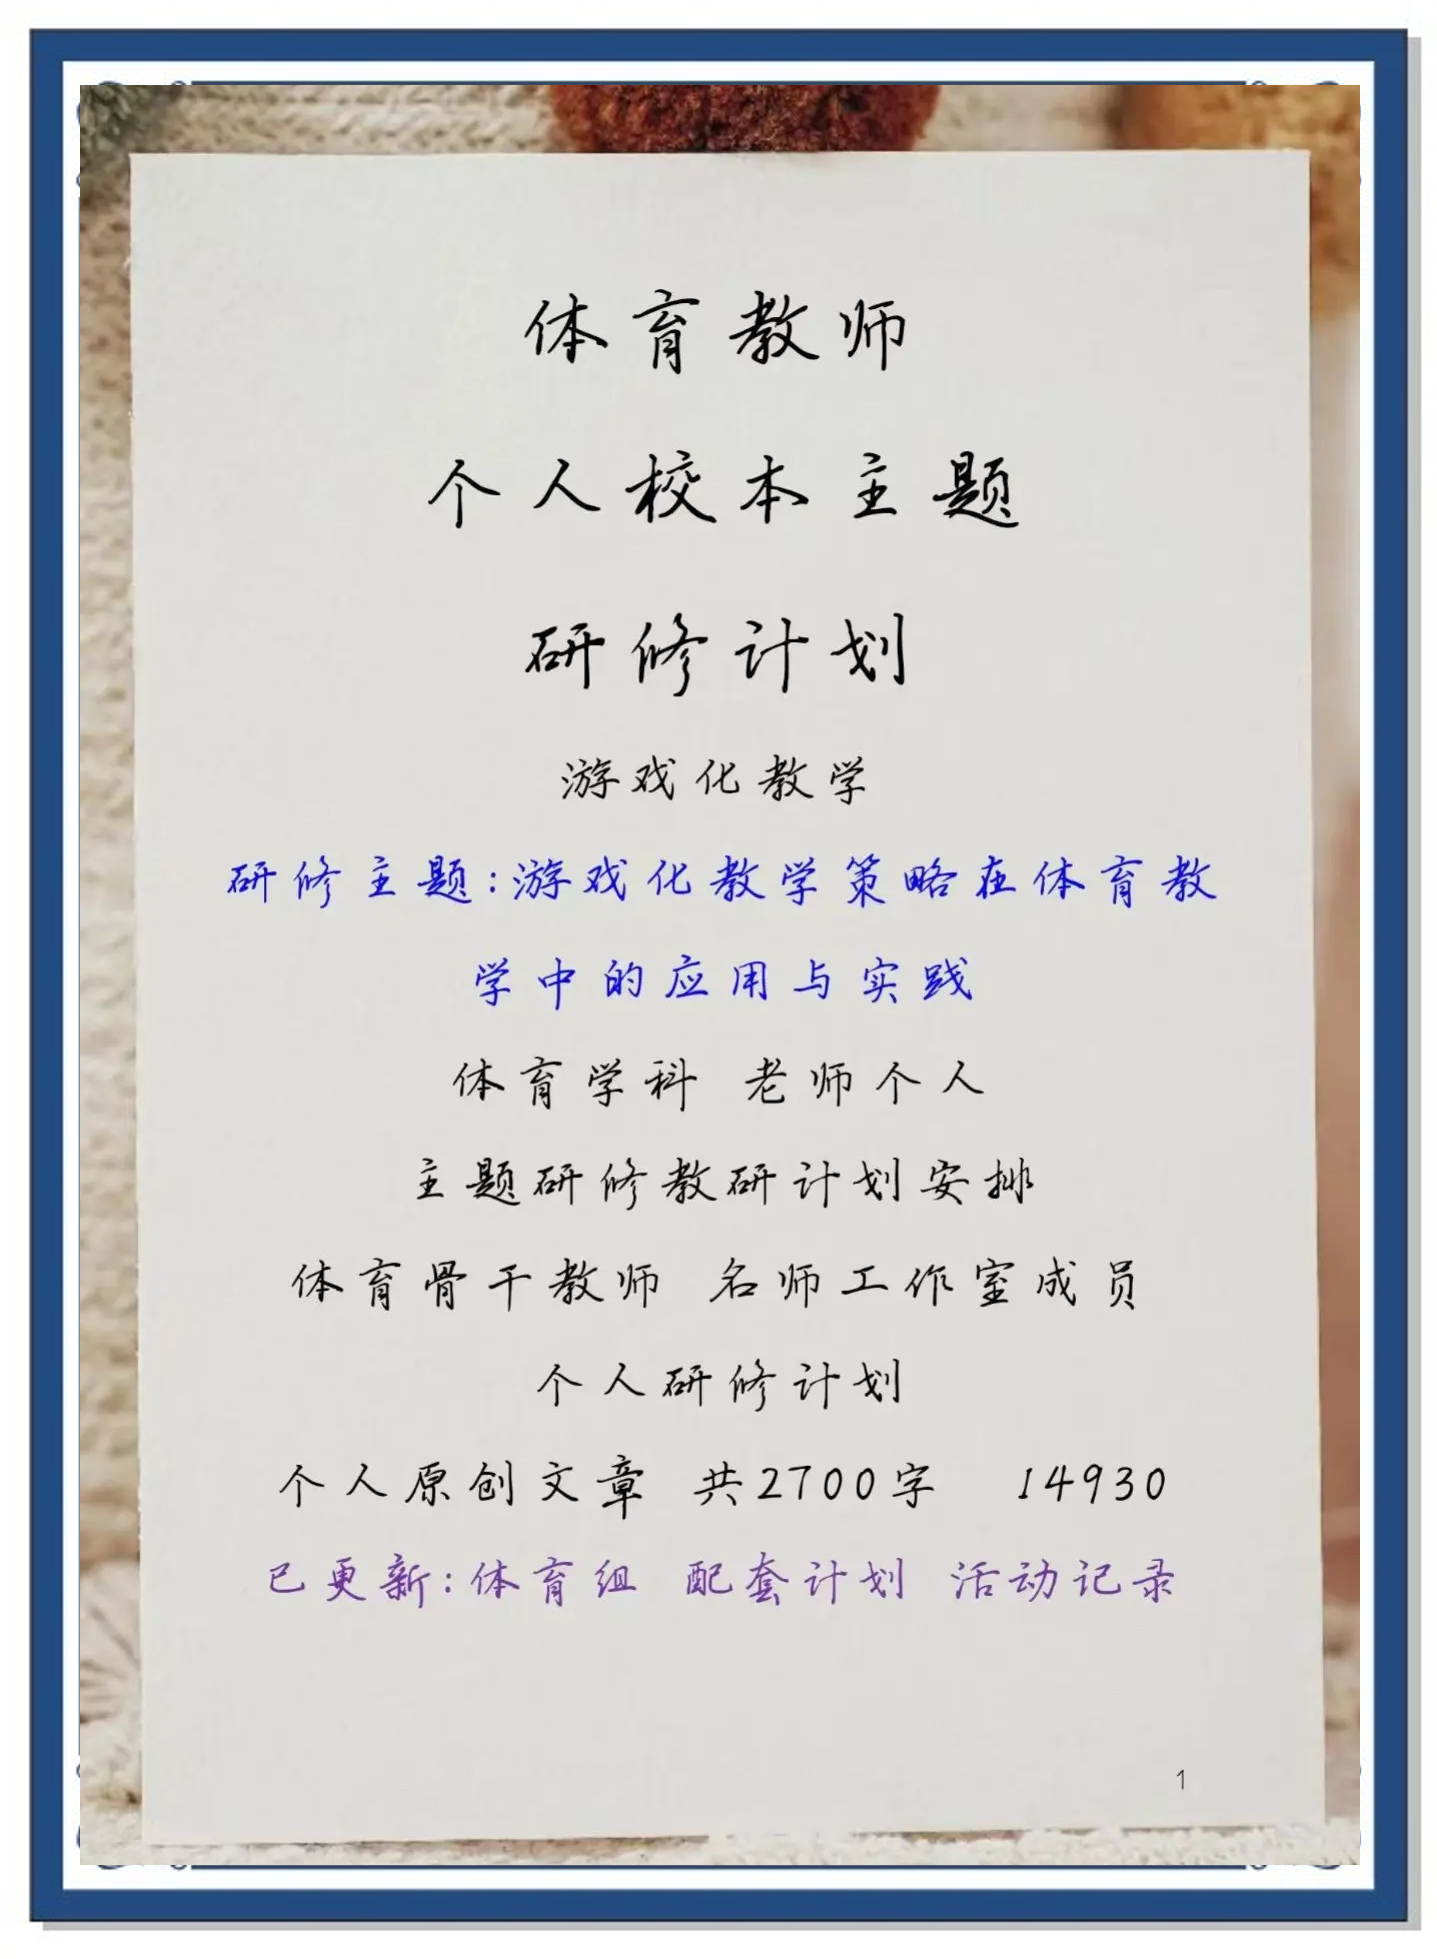 体育教师
个人校本主题
研修计划
游戏化教学
研修主题:游戏化教学策略在体育教
学中的应用与实践
体育学科 老师个人
主题研修教研计划安排
体育骨干教师 名师工作室成员
个人研修计划
个人原创文章 共2700字 14930
已更新:体育组 配套计划 活动记录
1